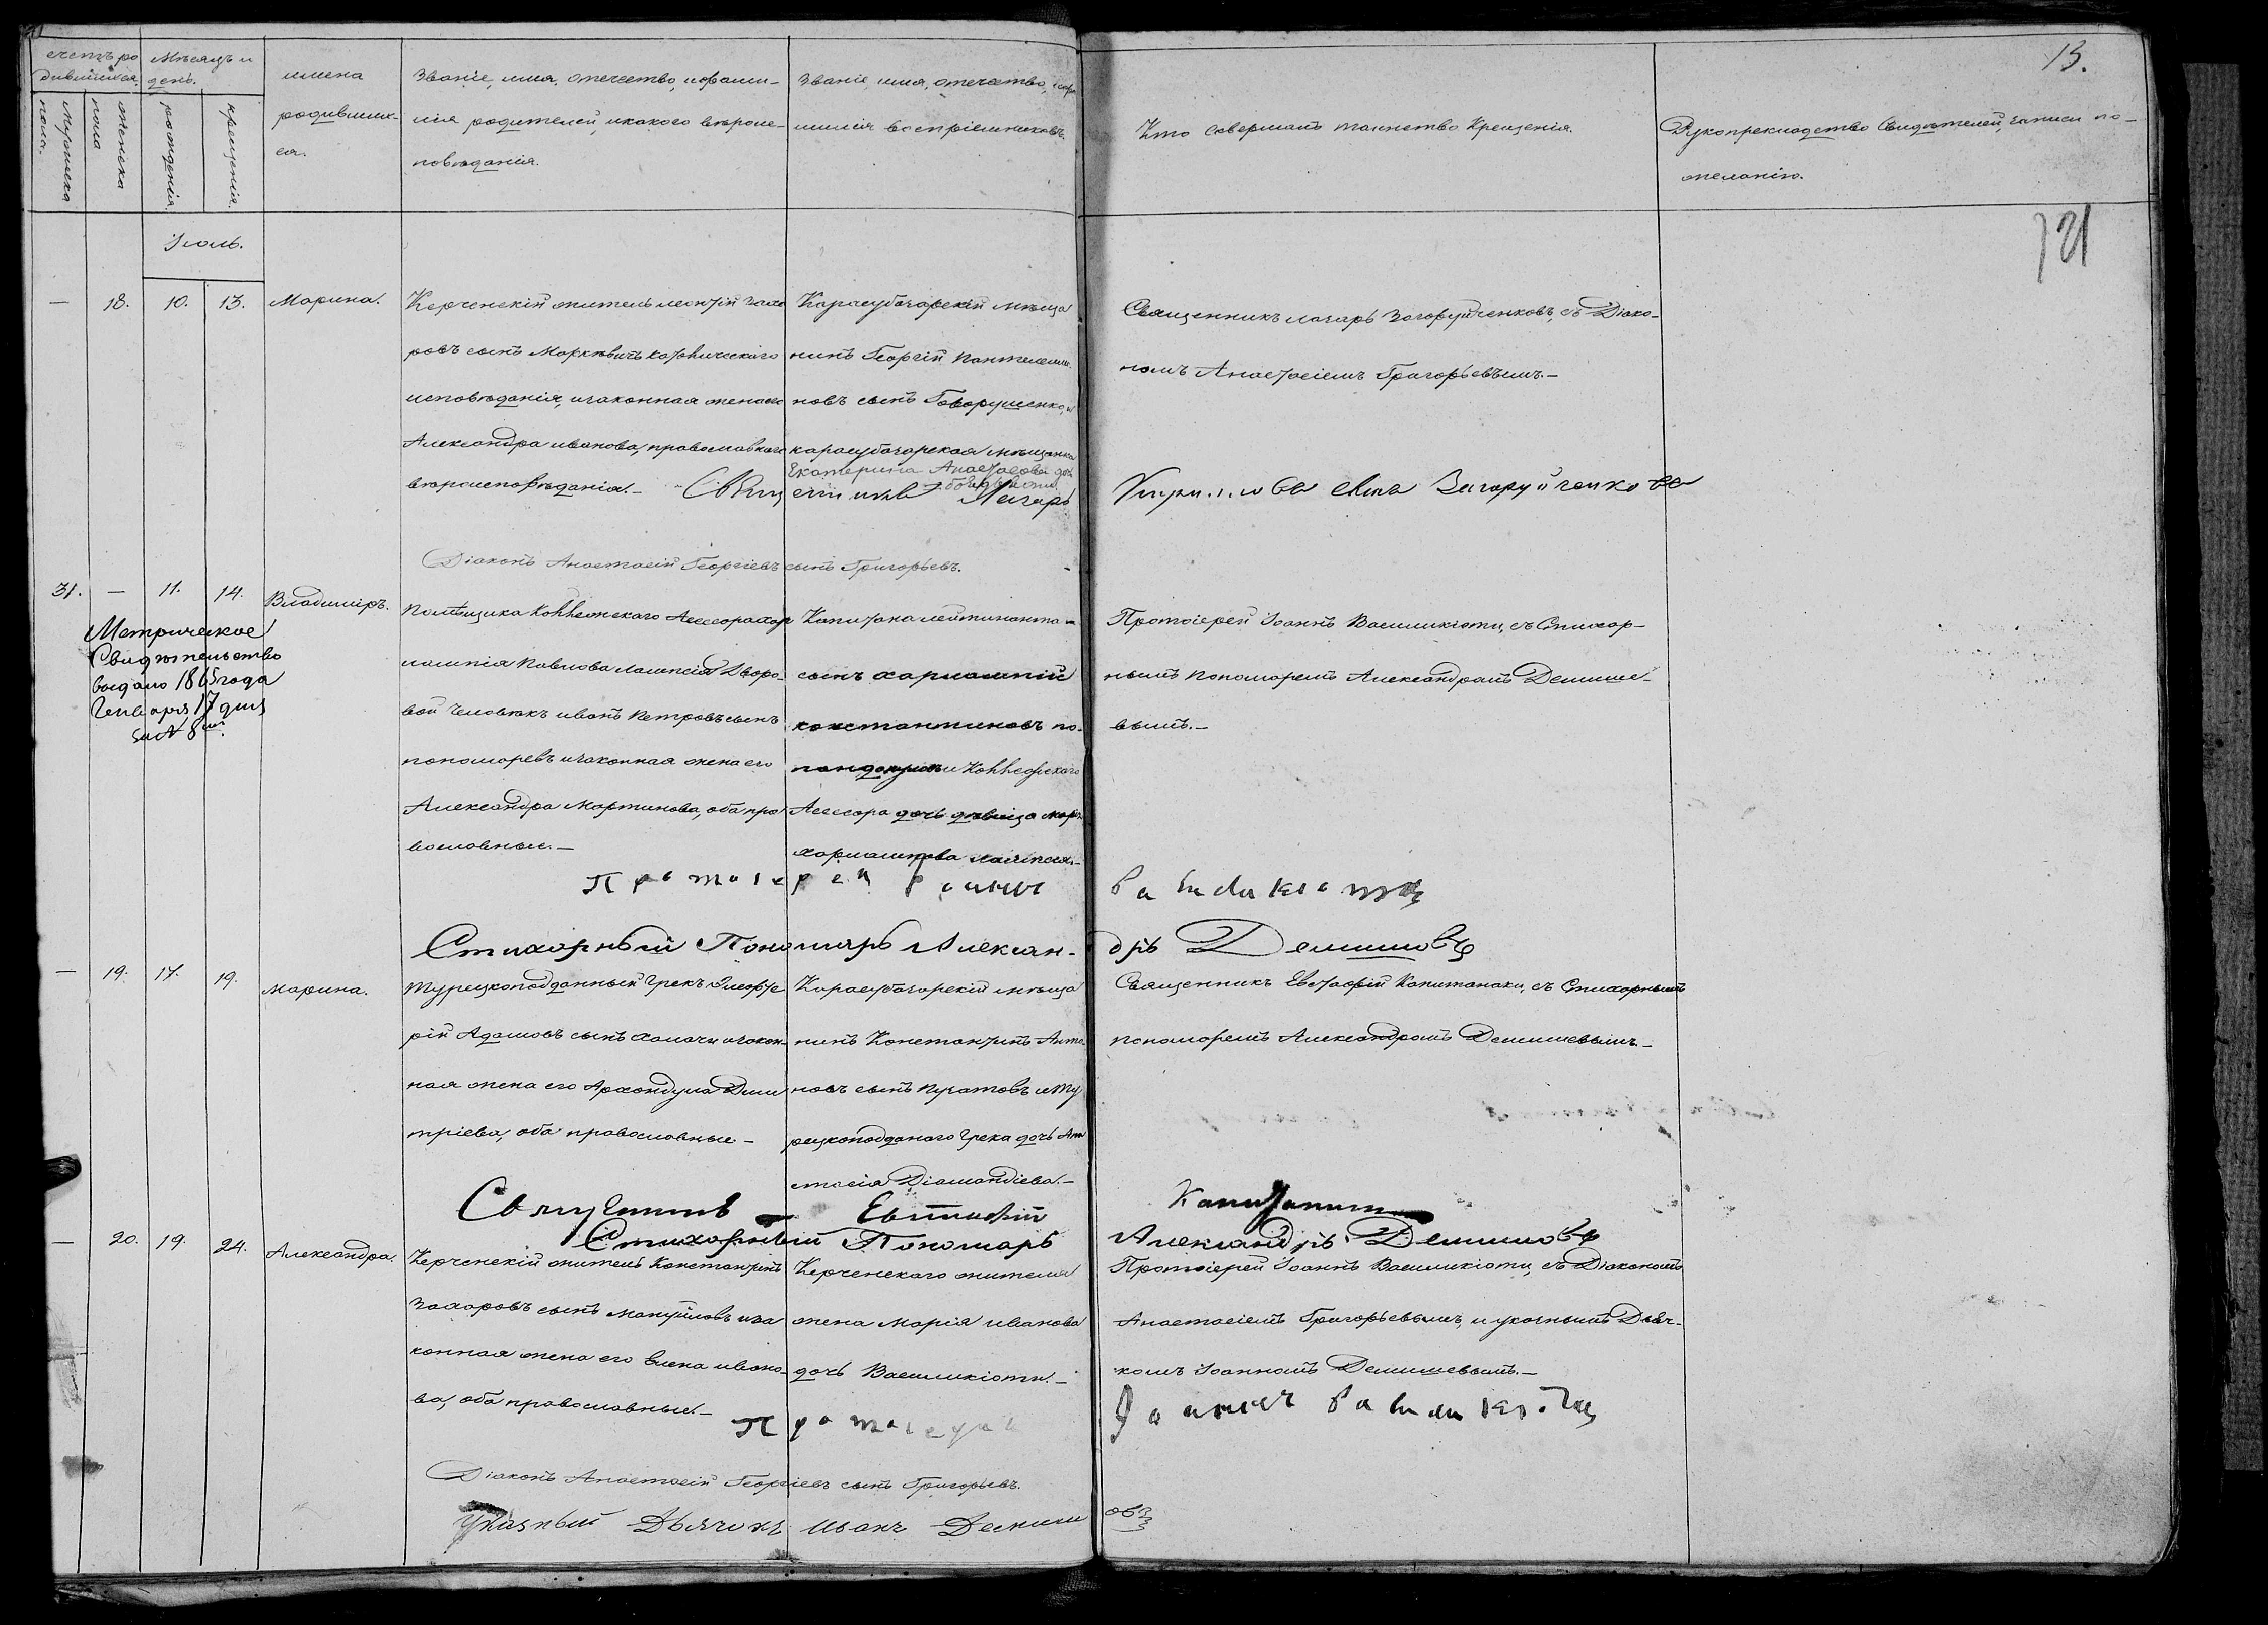 счетъ ро
дившихся.
Мѣсяцъ и
день.
мужеска
пола.
женска
пола
рожденія.
крещенія.
имена
родивших-
ся.
Званіе, имя, отечество, и фами-
лія родителей, и какого вѣроис-
повѣданія.
Званіе, имя, отечество, и фа
милія воспріемниковъ
Кто совершалъ таинство Крещенія.
Рукоприкладство Свидѣтелей, записи по-
желанію.
13.
121
Іюль.
— 18. 10. 13. Марина.
Керченскій житель Леонтій Заха
ровъ сынъ Маркевичъ католическаго
исповѣданія, и законная жена его
Александра иванова, православнаго
вѣроисповѣданія.—
Карасубазарскій мѣща
нинъ Георгій Пантелеимо
новъ сынъ Говорушенко, и
карасубазарская мѣщанка
Екатерина Анастасова дочь
Священникъ Лазарь Загоруйченковъ, съ Діако-
номъ Анастасіемъ Григорьевымъ.—
Священникъ Лазарь
сынъ Загоруйченковъ
Діаконъ Анастасій Георгіевъ сынъ Григорьевъ.
31. — 11. 14. Владиміръ.
Метрическое
Свидѣтельство
выдано 1865 года
Генваря 17 дня
за № 8м.
Помѣщика Коллежскаго Ассесора Хар
лампія Павлова Лампси Дворо-
вой человѣкъ иванъ Петровъ сынъ
пономаревъ и законная жена его
Александра Мартинова, оба пра
вославные.—
Капитана лейтинанта
сынъ харлампій
константиновъ по-
пандопуло и Коллежскаго
Ассесора дочь дѣвица Марія
харлампіева Лампси.—
Протоіерей Іоаннъ Василикіоти, съ Стихар-
нымъ пономаремъ Александромъ Демише-
вымъ.—
Протоіерей Іоаннъ
Василикіоти
Стихарный Пономарь Алексан-
дръ Демишовъ
— 19. 17. 19. Марина.
Турецкоподданный грекъ Элефте
рій Адамовъ сынъ Халачи и закон-
ная жена его Архондула Дми
тріева, оба православные—
Карасубазарскій мѣща
нинъ Константинъ Анто
новъ сынъ Пугатовъ и Ту
рецкоподданаго Грека дочь Ана
стасія Діамандіева.—
Священникъ Евстафій Капитанаки, съ Стихарнымъ
пономаремъ Александромъ Демишевымъ—
Священникъ Евстафій
Стихарный Пономарь
Александръ Демишовъ
— 20. 19. 24. Александра.
Керченскій житель Константинъ
Захаровъ сынъ Мануйловъ и за
конная жена его Елена ивано-
ва, оба православные.—
Керченскаго жителя
жена Марія иванова
дочь Василикіоти.—
Протоіерей Іоаннъ Василикіоти, съ Діакономъ
Анастасіемъ Григорьевымъ, и указнымъ Дьяч-
комъ Іоанномъ Демишевымъ.—
Протоіерей
Іоаннъ Василикіоти
Діаконъ Анастасій Георгіевъ сынъ Григорьевъ.
Указный Дьячокъ Иванъ Демиш
овъ